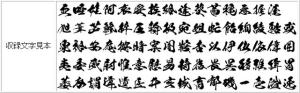 収録文字見本
亜唖娃阿哀愛挨姶逢葵茜穐悪握渥
旭葦芦鯵梓圧斡扱宛姐虻飴絢綾鮎或
粟袷安庵按暗案闇鞍杏以伊位依偉囲
夷委威尉惟意慰易椅為畏異移維緯胃
萎衣謂違遺医井亥域育郁磯一壱溢逸